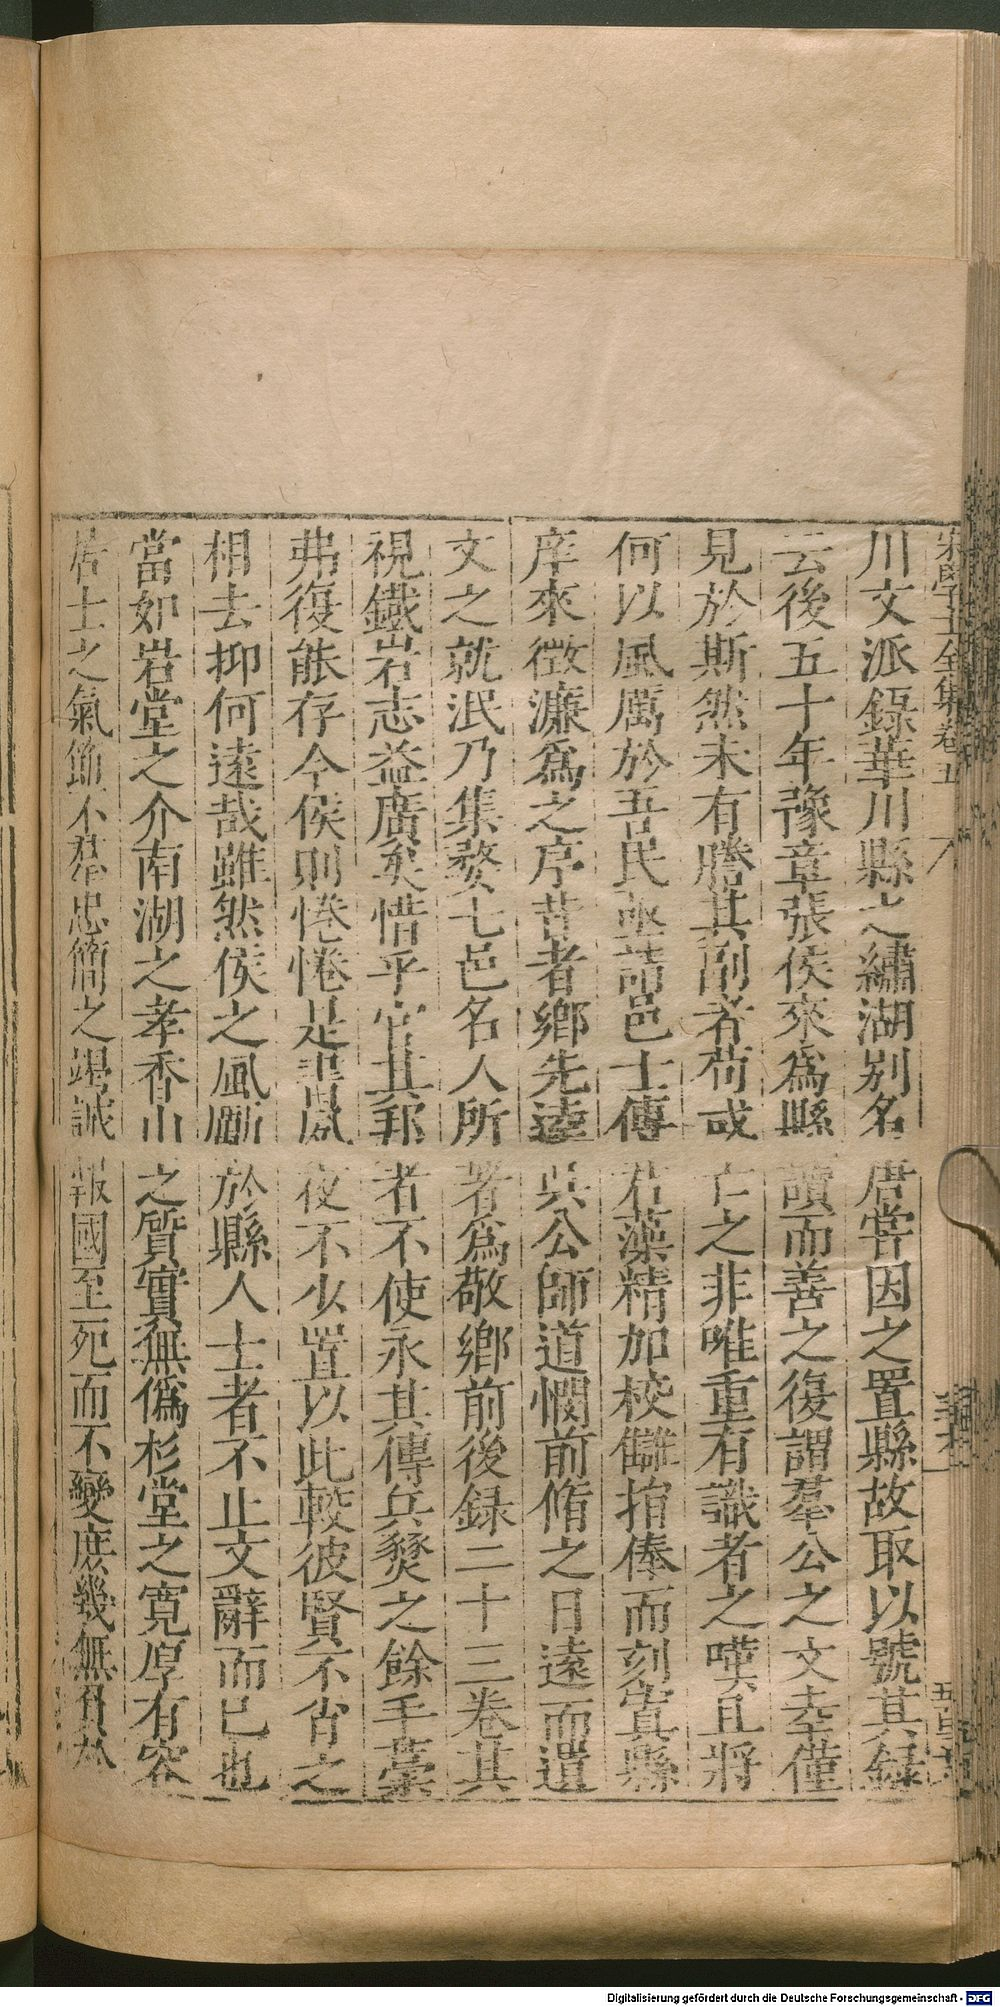 宋學士全集卷五
川文派錄華川縣之繡湖別名唐嘗因之置縣故取以號其録
云後五十年豫章張侯來爲縣讀而善之復謂羣公之文幸僅
見於斯然未有謄其副者苟或亡之非唯重有識者之嘆且將
何以風厲於吾民亟請邑士傅君藻精加校讎捐俸而刻寘縣
庠來徵濂爲之序昔者鄉先達吳公師道憫前脩之日遠而遺
文之就泯乃集婺七邑名人所著爲敬鄉前後録二十三卷其
視鐵岩志益廣矣惜乎官其邦者不使永其傳兵燹之餘手藁
弗復能存今侯則惓惓是書夙夜不少置以此較彼賢不肖之
相去抑何遠哉雖然侯之風厲於縣人士者不止文辭而已也
當如岩堂之介南湖之孝香山之質實無僞杉堂之寬厚有容
居士之氣節不羣忠簡之竭誠報國至死而不變庶幾無負於
Digitalisierung gefördert durch die Deutsche Forschungsgemeinschaft - DFG